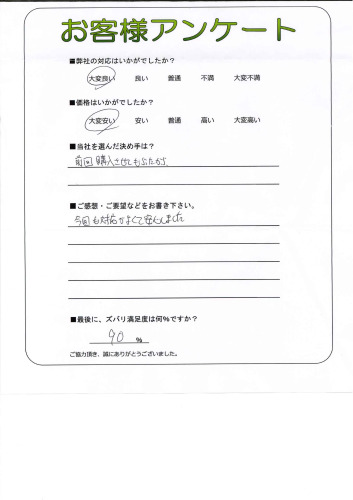 お客様アンケート
■弊社の対応はいかがでしたか？
大変良い 良い 普通 不満 大変不満
■価格はいかがでしたか？
大変安い 安い 普通 高い 大変高い
■当社を選んだ決め手は？
前回購入させてもらったから
■ご感想・ご要望などをお書き下さい。
今回も対応がよくて安心しました
■最後に、ズバリ満足度は何%ですか？
90 %
ご協力頂き、誠にありがとうございました。